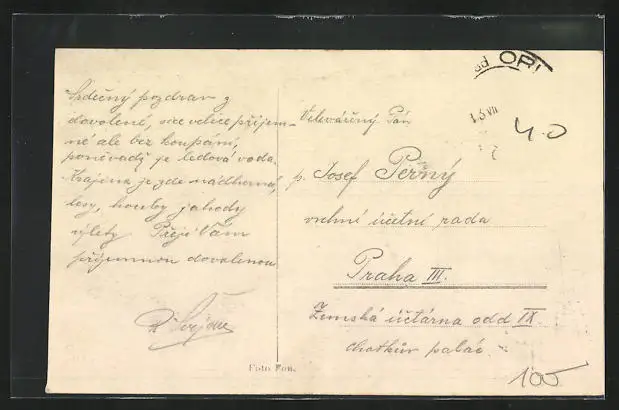 Srdečný pozdrav z
dovolené, sice velice příjem-
né ale bez koupání,
poněvadž je ledová voda.
Krajina je zde nádherná,
lesy, houby jahody
výlety Přeji Vám
příjemnou dovolenou
Velevážený Pán
p. Josef Perný
vrchní účetní rada
Praha III.
Zemská účtárna odd IX.
palác
Foto Fon.
od ORL
13 VII
40
100